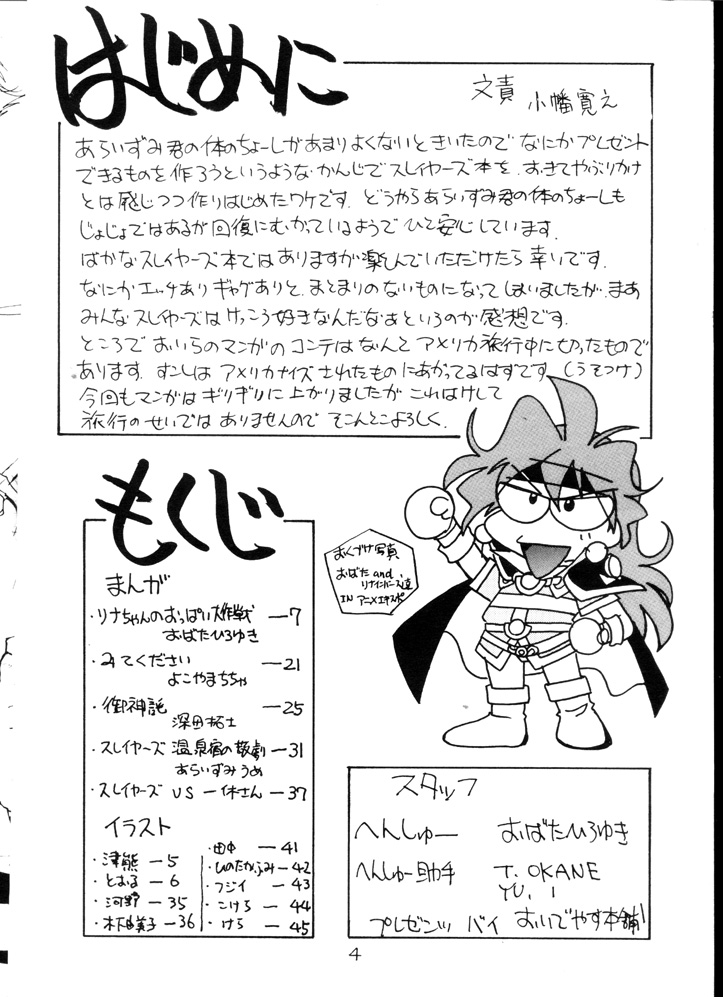 はじめに
文責 小幡寛之
あらいずみ君の体のちょーしがあまりよくないときいたので なにかプレゼント
できるものを作ろうというような かんじでスレイヤーズ本を おきてやぶりかけ
とは感じつつ作りはじめたワケです. どうやらあらいずみ君の体のちょーしも
じょじょではあるが回復にむかっているようで ひと安心しています.
ばかなスレイヤーズ本ではありますが楽しんでいただけたら幸いです.
なにかエッチありギャグありと、まとまりのないものになってしまいましたが、まあ
みんなスレイヤーズはけっこう好きなんだなぁというのが感想です.
ところで おいらのマンガのコンテはなんと アメリカ旅行中に切ったもので
あります. すこしは アメリカナイズされたものにあがってるはずです (うそつけ)
今回もマンガはギリギリに上がりましたが これはけして
旅行のせいでは ありませんので そこんとこよろしく.
もくじ
まんが
・リナちゃんのおっぱい大作戦 ー7
おばたひろゆき
・みてください ー21
よこやまちちゃ
・御神託 ー25
深田拓士
・スレイヤーズ 温泉宿の惨劇 ー31
あらいずみうめ
・スレイヤーズ VS 一休さん ー37
イラスト
・津熊 ー5
・とおる ー6
・河野 ー35
・木下由美子 ー36
・田中 ー41
・ひのたかふみ ー42
・フジイ ー43
・こけら ー44
・けら ー45
おくづけ写真
おばた and
リナインバース達
IN アニメエキスポ
スタッフ
へんしゅー おばたひろゆき
へんしゅー助手 T. OKANE
YU. I
プレゼンツ バイ おいでやす本舗
4